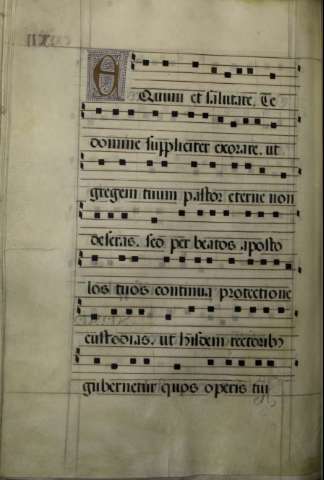 EQuum et salutare. Te
domine suppliciter exorare. ut
gregem tuum pastor eterne non
deseras. sed per beatos aposto
los tuos continua protectione
custodias. ut hisdem rectorib9
gubernetur quos operis tui